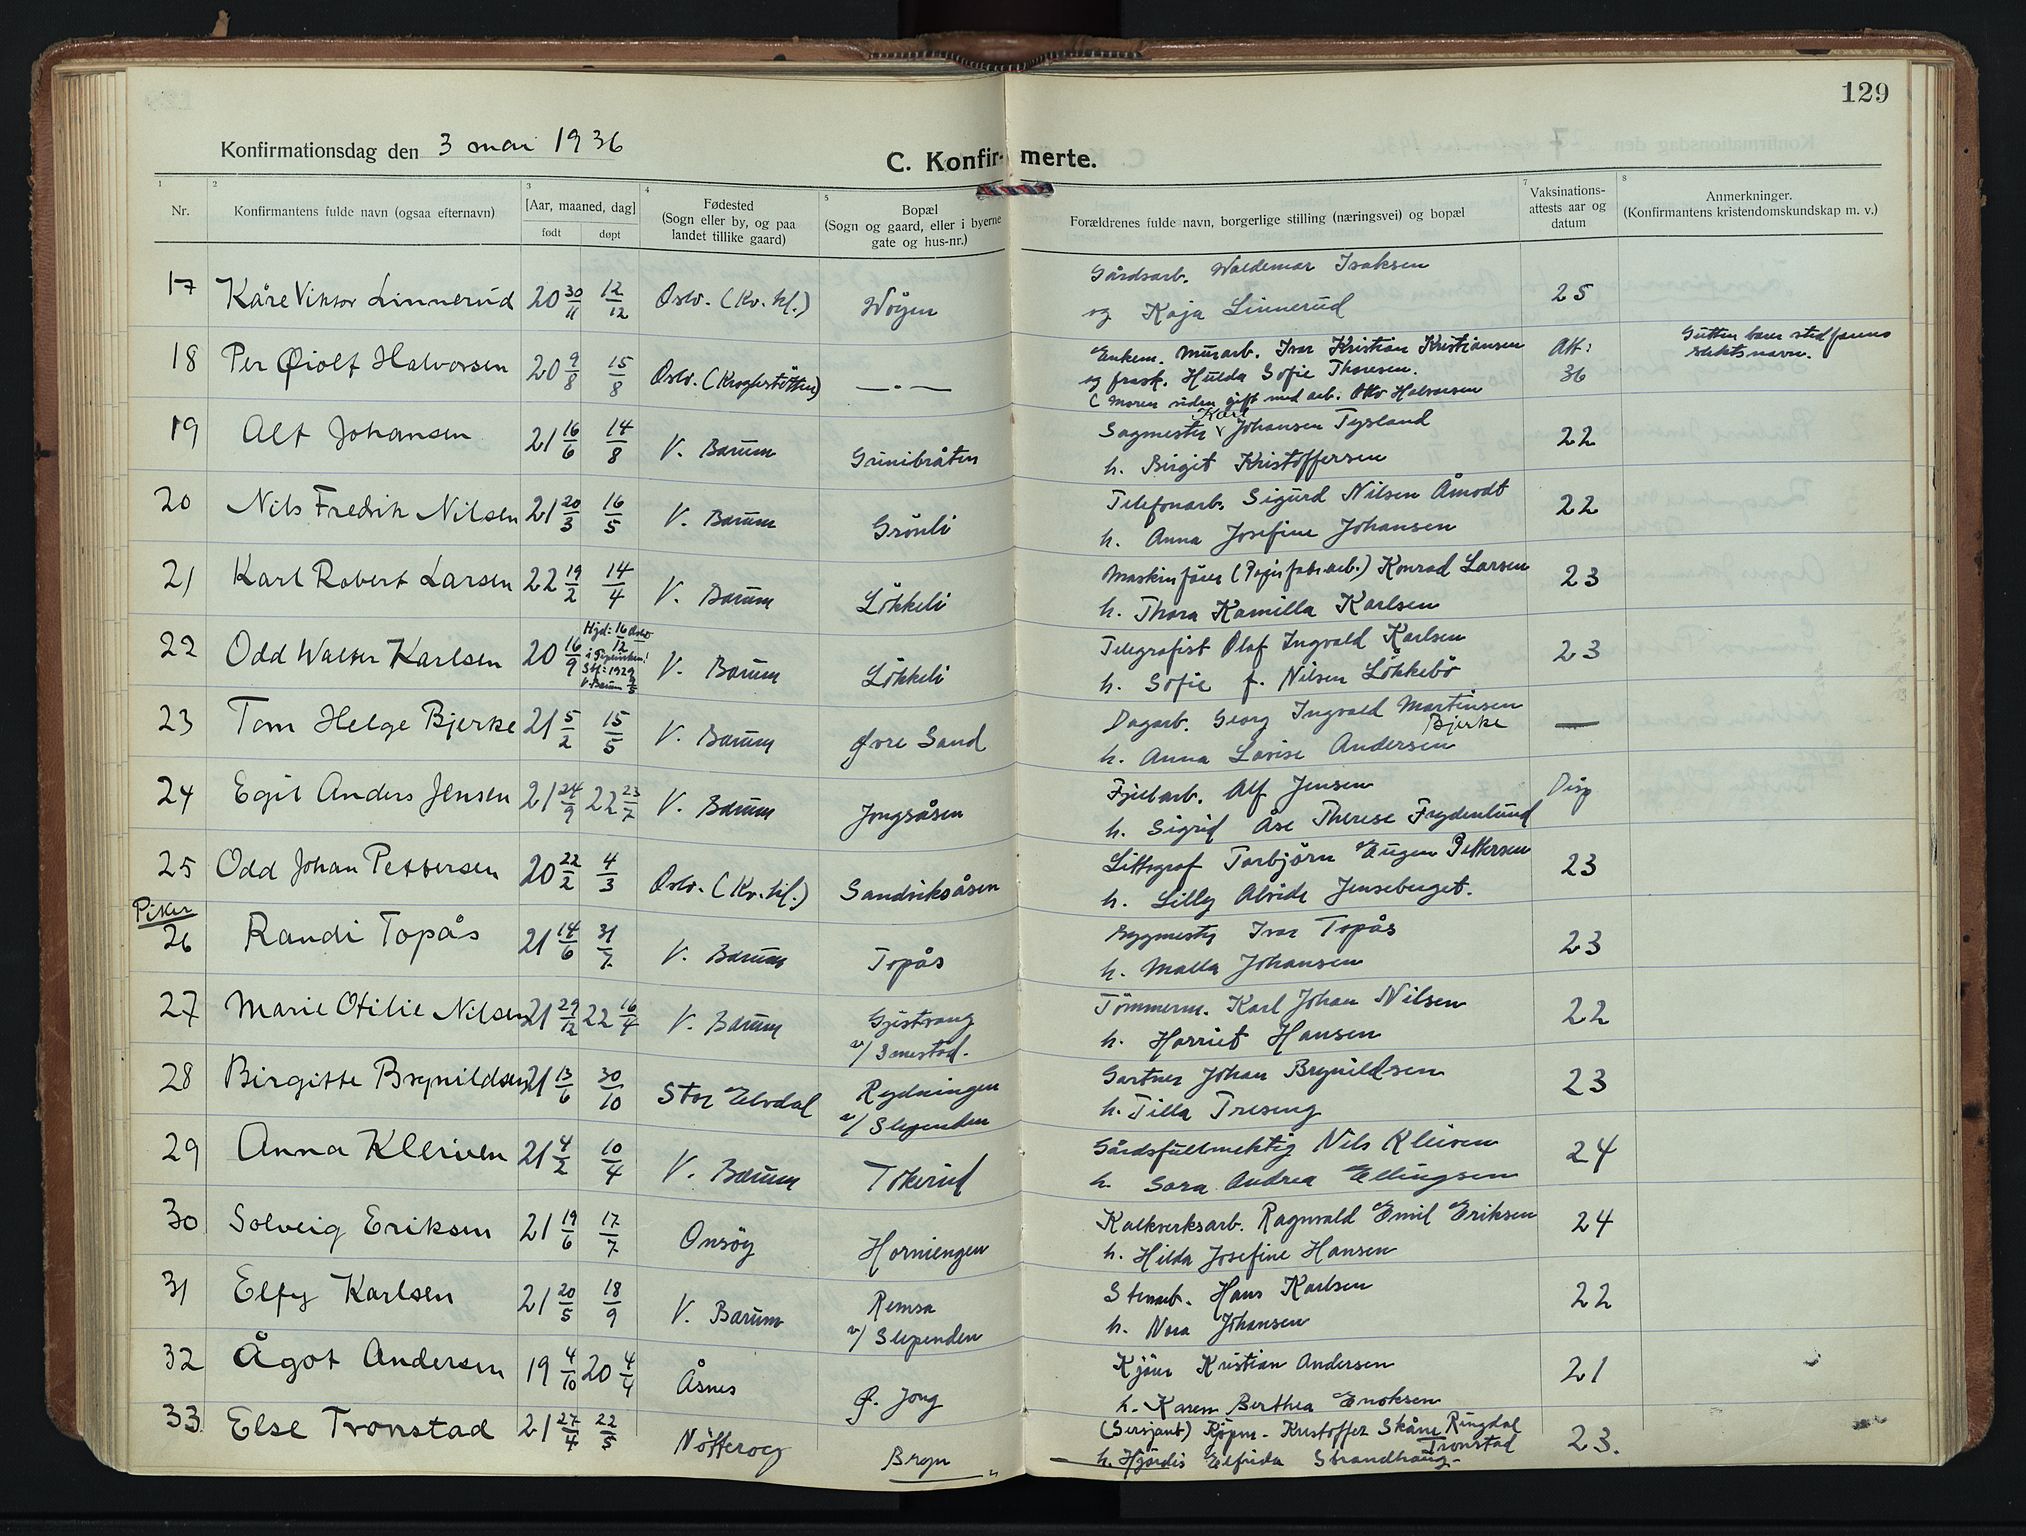 129
Konfirmationsdag den 3 mai 1936
C. Konfirmerte.
1 2 3 4 5 7 8
Nr.
Konfirmantens fulde navn (ogsaa efternavn)
[Aar, maaned, dag]
født døpt
Fødested
(Sogn eller by, og paa
landet tillike gaard)
Bopæl
(Sogn og gaard, eller i byerne
gate og hus-nr.)
Forældrenes fulde navn, borgerlige stilling (næringsvei) og bopæl
Vaksinations-
attests aar og
datum
Anmerkninger.
(Konfirmantens kristendomskundskap m. v.)
17 Kåre Viktor Linnerud 20 30/11 12/12 Oslo. (Kv. kl.) Wøyen Gårdsarb. Waldemar Isaksen 25
og Kaja Linnerud
18 Per Øiolf Halvorsen 20 9/8 15/8 Oslo. (Kroghstøtten) — . — Enkem. Murarb. Ivar Kristian Kristiansen Att: 36 Gutten bærer stedfarens
og frask. Hulda Sofie Thoresen. slektsnavn.
(Moren siden gift med arb. Otto Halvorsen
19 Alf Johansen 21 16/6 14/8 V. Bærum Grinibråten Sagmester Karl Johansen Tysland 22
h. Birgit Kristoffersen
20 Nils Fredrik Nilsen 21 20/3 16/5 V. Bærum Grønli Telefonarb. Sigurd Nilsen Åmodt 22
h. Anna Josefine Johansen
21 Karl Robert Larsen 22 19/2 14/4 V. Bærum Løkkeli Maskinfører (Papirfabr.arb.) Konrad Larsen 23
h. Thora Kamilla Karlsen
22 Odd Walter Karlsen 20 16/9 Hjd: 16/12 Oslo
Stf: 1929
V. Bærum V. Bærum Løkkeli Telegrafist Olaf Ingvald Karlsen 23
h. Sofie f. Nilsen Løkkebø
23 Tom Helge Bjerke 21 5/2 15/5 V. Bærum Øvre Sand Dagarb. Georg Ingvald Martinsen —
Bjerke
h. Anna Lovise Andersen
24 Egil Anders Jensen 21 24/9 22 23/7 V. Bærum Jongsåsen Fjellarb. Alf Jensen Disp
h. Sigrid Åse Therese Frydenlund
25 Odd Johan Pettersen 20 22/2 4/3 Oslo. (Kv. kl.) Sandviksåsen Littograf Torbjørn Eugen Pettersen 23
h. Lilly Alvide Jenseberget.
Piker
26 Randi Topås 21 14/6 31/7 V. Bærum Topås Bygmester Ivar Topås 23
h. Malla Johansen
27 Marie Otilie Nilsen 21 29/12 22 16/4 V. Bærum Gjistvang Tømmerm. Karl Johan Nilsen 22
v/ Smestad. h. Harriet Hansen
28 Birgitte Brynildsen 21 13/6 30/10 Stor Elvdal Rydningen Gartner Johan Brynildsen 23
v/ Slependen h. Tilla Treseng
29 Anna Kleiven 21 4/2 10/4 V. Bærum Tokerud Gårdsfullmektig Nils Kleiven 24
h. Sara Andrea Ellingsen
30 Solveig Eriksen 21 19/6 17/7 Onsøy Horniengen Kalkverksarb. Ragnvald Emil Eriksen 24
h. Hilda Josefine Hansen
31 Elfy Karlsen 21 20/5 18/9 V. Bærum Remsa Stenarb. Hans Karlsen 22
v/ Slependen h. Nora Johansen
32 Ågot Andersen 19 4/10 20 4/4 Åsnes Ø. Jong Kjører Kristian Andersen 21
h. Karen Berthea Enoksen
33 Else Tronstad 21 27/4 22/5 Nøtterøy Bryn (Sersjant) Kjøpm. Kristoffer Skåne Ringdal 23.
Tronstad
h. Hjørdis Elfrida Strandhaug.